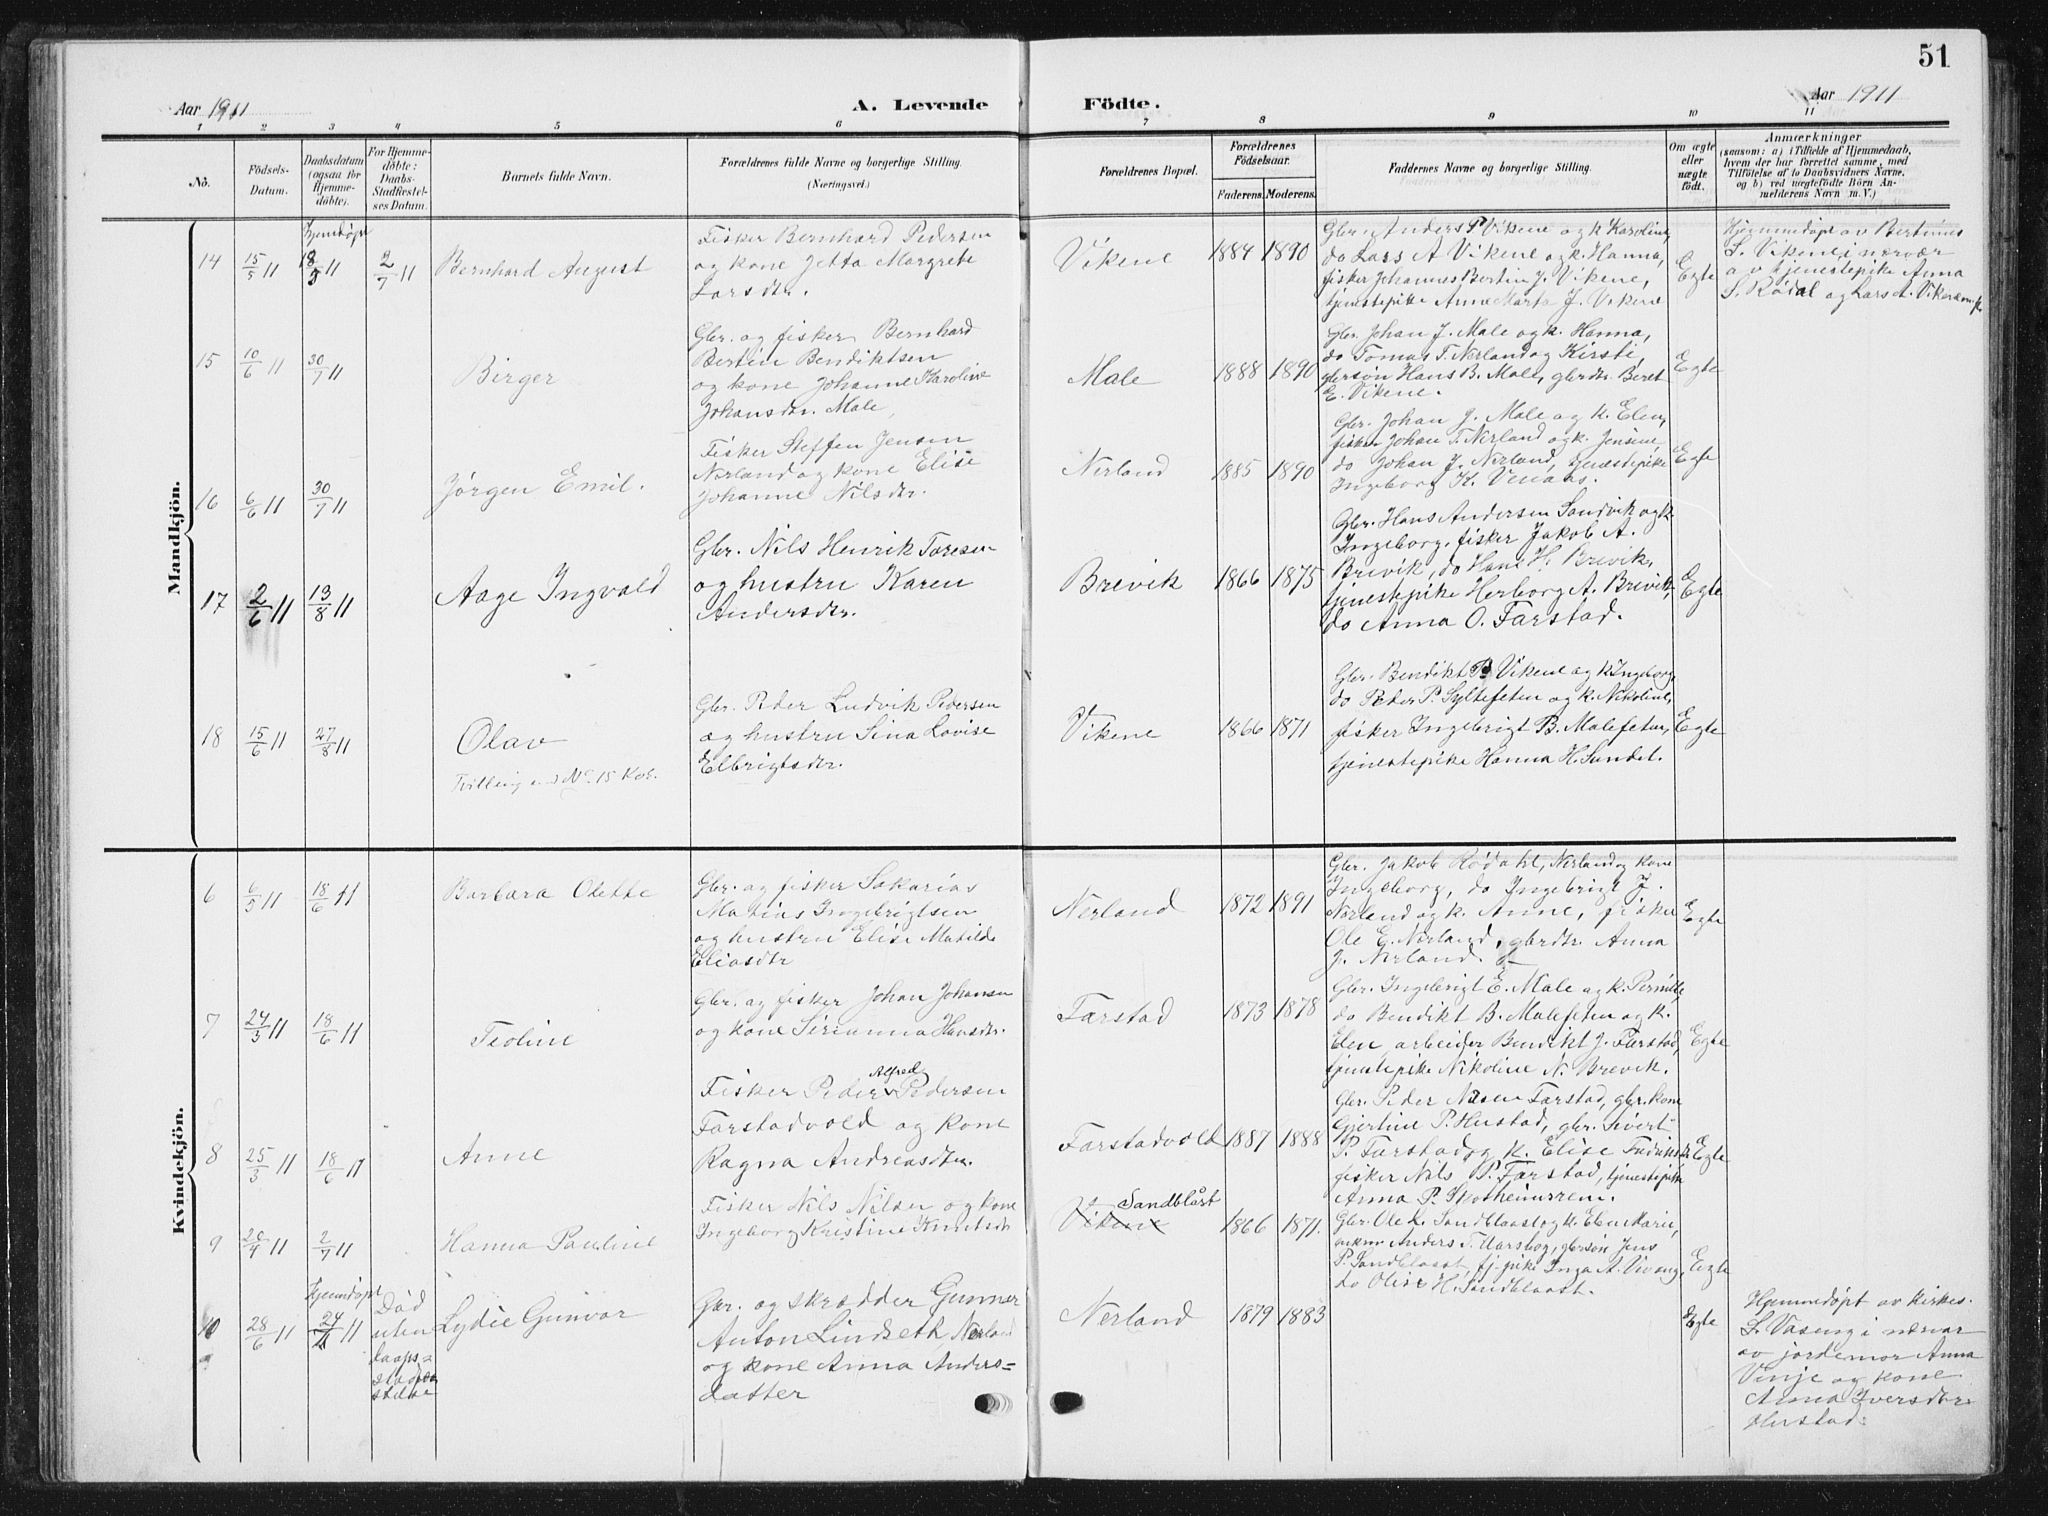 51
Aar 1911
A. Levende
Födte.
Aar 1911
1 2 3 4 5 6 7 8 9 10 11
No.
Födsels-
Datum.
Daabsdatum
(ogsaa for
Hjemme-
döbte).
For Hjemme-
döbte:
Daabs-
Stadfæstel-
ses Datum.
Barnets fulde Navn.
Forældrenes fulde Navne og borgerlige Stilling.
(Næringsvei.)
Forældrenes Bopæl.
Forældrenes
Födselsaar.
Faderens. Moderens.
Faddernes Navne og borgerlige Stilling.
Om ægte
eller
uægte
født.
Anmærkninger
(saasom: a) i Tilfælde af Hjemmedaab,
hvem der har forrettet samme, med
Tilföielse af to Daabsvidners Navne,
og b) ved uægtefödte Börn An-
melderens Navn m. V.)
Mandkjön.
14
15/5 11
Hjemdöpt
18/5 11
2/7 11
Bernhard August
Fisker Bernhard Pedersen
og kone Jetta Margrete
Larsdtr.
Vikene
1884 1890
Gbr. Anders P Vikene og k Karoline,
do Lars A Vikene og k. Hanna,
fisker Johannes Bertin J. Vikene,
tjenestepike Anne Marta J. Vikene
Egte
Hjemmedöpt av Bertinus
S. Vikene i nærvær
av tjenestepike Anna
S. Rödal og Lars A. Vikene
15
10/6 11
30/7 11
Birger
Gbr. og fisker Bernhard
Bertin Bendiktsen
og kone Johanne Karoline
Johansdtr. Male,
Male
1888 1890
Gbr. Johan J. Male og k. Hanna,
do Tomas T. Nerland og Kirsti,
gbrsön Hans B. Male, gbrdtr. Beret
E. Vikene.
Egte
16
6/6 11
30/7 11
Jörgen Emil.
Fisker Steffen Jensen
Nerland og kone Elise
Johanne Nilsdtr.
Nerland
1885 1890
Gbr. Johan J. Male og k. Elen,
fisker Johan T. Nerland og k. Jensine,
do Johan J. Nerland, tjenestepike
Ingeborg K. Venaas.
Egte
17
2/6 11
13/8 11
Aage Ingvald
Gbr. Nils Henrik Taresen
og hustru Karen
Andersdtr.
Brevik
1866 1875
Gbr. Hans Andersen Sandvik og k.
Ingeborg, fisker Jakob A.
Brevik, do Hans H. Brevik,
tjenestepike Herborg A. Brevik,
do Anna O. Farstad.
Egte
18
15/6 11
27/8 11
Olav
Tvilling med No 15 Kv.
Gbr. Peder Ludvik Pedersen
og hustru Sina Lovise
Elbrigtsdtr.
Vikene
1866 1871
Gbr. Bendikt B Vikene og k Ingeborg,
do Peder P. Syltefeten og k. Nikoline,
fisker Ingebrigt B. Malefeten,
tjenestepike Hanna H. Sundet.
Egte
Kvindekjön.
6
6/5 11
18/6 11
Barbara Olette
Gbr. og fisker Sakarias
Matias Ingebrigtsen
og hustru Elise Matilde
Eliasdtr
Nerland
1872 1891
Gbr. Jakob Rödahl, Nerland og kone
Ingeborg, do Ingebrigt J.
Nerland og k. Anne, fisker
Ole E. Nerland, gbrdtr. Anna
J. Nerland.
Egte
7
24/3 11
18/6 11
Teoline
Gbr. og fisker Johan Johansen
og kone Sirianna Hansdtr.
Farstad
1873 1878
Gbr. Ingebrigt E. Male og k. Pernille,
do Bendikt B. Malefeten og k.
Elen arbeider Bendikt J. Farstad,
tjenestepike Nikoline N. Brevik.
Egte
8
25/3 11
18/6 11
Anne
Fisker Peder Alfred Pedersen
Farstadvold og kone
Ragna Andreasdtr.
Farstadvold
1887 1888
Gbr. Peder Nilsen Farstad, gbr. kone
Gjertine P. Hustad, gbr. Sivert
P. Farstad og k. Elise
fisker Nils P. Farstad, tjenestepike
Anna P. Skotheimsrem.
Egte
9
20/4 11
2/7 11
Hanna Pauline
Fisker Nils Nilsen og kone
Ingeborg Kristine Knutsdtr
Sandblåst
Vikene
1866 1871.
Gbr. Ole L. Sandblaast og k. Elen Marie,
Anders T. Harshog, gbrsön Jens
P. Sandblaast, tj. pike Inga A. Vevang,
do Olise H. Sandblaast.
Egte
10
28/6 11
Hjemdöpt
11
Död
uten
daaps-
Lydie Gunvor
Gbr. og skrædder Gunner
Anton Lindseth Nerland
og kone Anna Anders-
datter
Nerland
1879 1883
Egte
Hjemmedöpt av kirkes.
S. Vaseng i nærvær
av jordemor Anna
Vinje og kone
Anna Iversdtr
Hustad.